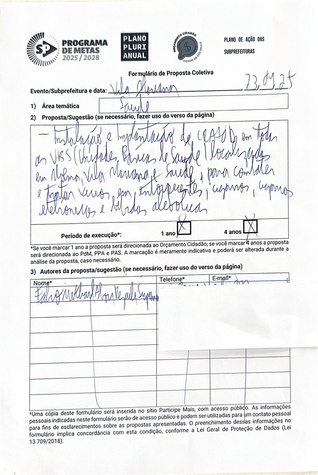 SP PROGRAMA DE METAS 2025 / 2028
PLANO PLURI ANUAL
PLANO DE AÇÃO DAS SUBPREFEITURAS
Formulário de Proposta Coletiva
Evento/Subprefeitura e data: Vila Mariana
1) Área temática Saúde
2) Proposta/Sugestão (se necessário, fazer uso do verso da página)
— Instalação e implantação de em todas
as UBS (Unidades Básicas de Saúde) localizadas
em Vila Mariana e Saúde, para combater
e tratar entorpecentes, cigarros, cigarros
eletrônicos e bebidas alcoólicas
Período de execução*: 1 ano X 4 anos X
*Se você marcar 1 ano a proposta será direcionada ao Orçamento Cidadão; se você marcar 4 anos a proposta
será direcionada ao PdM, PPA e PAS. A marcação é meramente indicativa e poderá ser alterada durante a
análise da proposta, caso necessário.
3) Autores da proposta/sugestão (se necessário, fazer uso do verso da página)
Nome* Telefone* E-mail*
*Uma cópia deste formulário será inserida no sítio Participe Mais, com acesso público. As informações
pessoais indicadas neste formulário serão de acesso público e podem ser utilizadas para um contato pessoal
para fins de esclarecimentos sobre as propostas apresentadas. O preenchimento dessas informações no
formulário implica concordância com esta condição, conforme a Lei Geral de Proteção de Dados (Lei
13.709/2018).